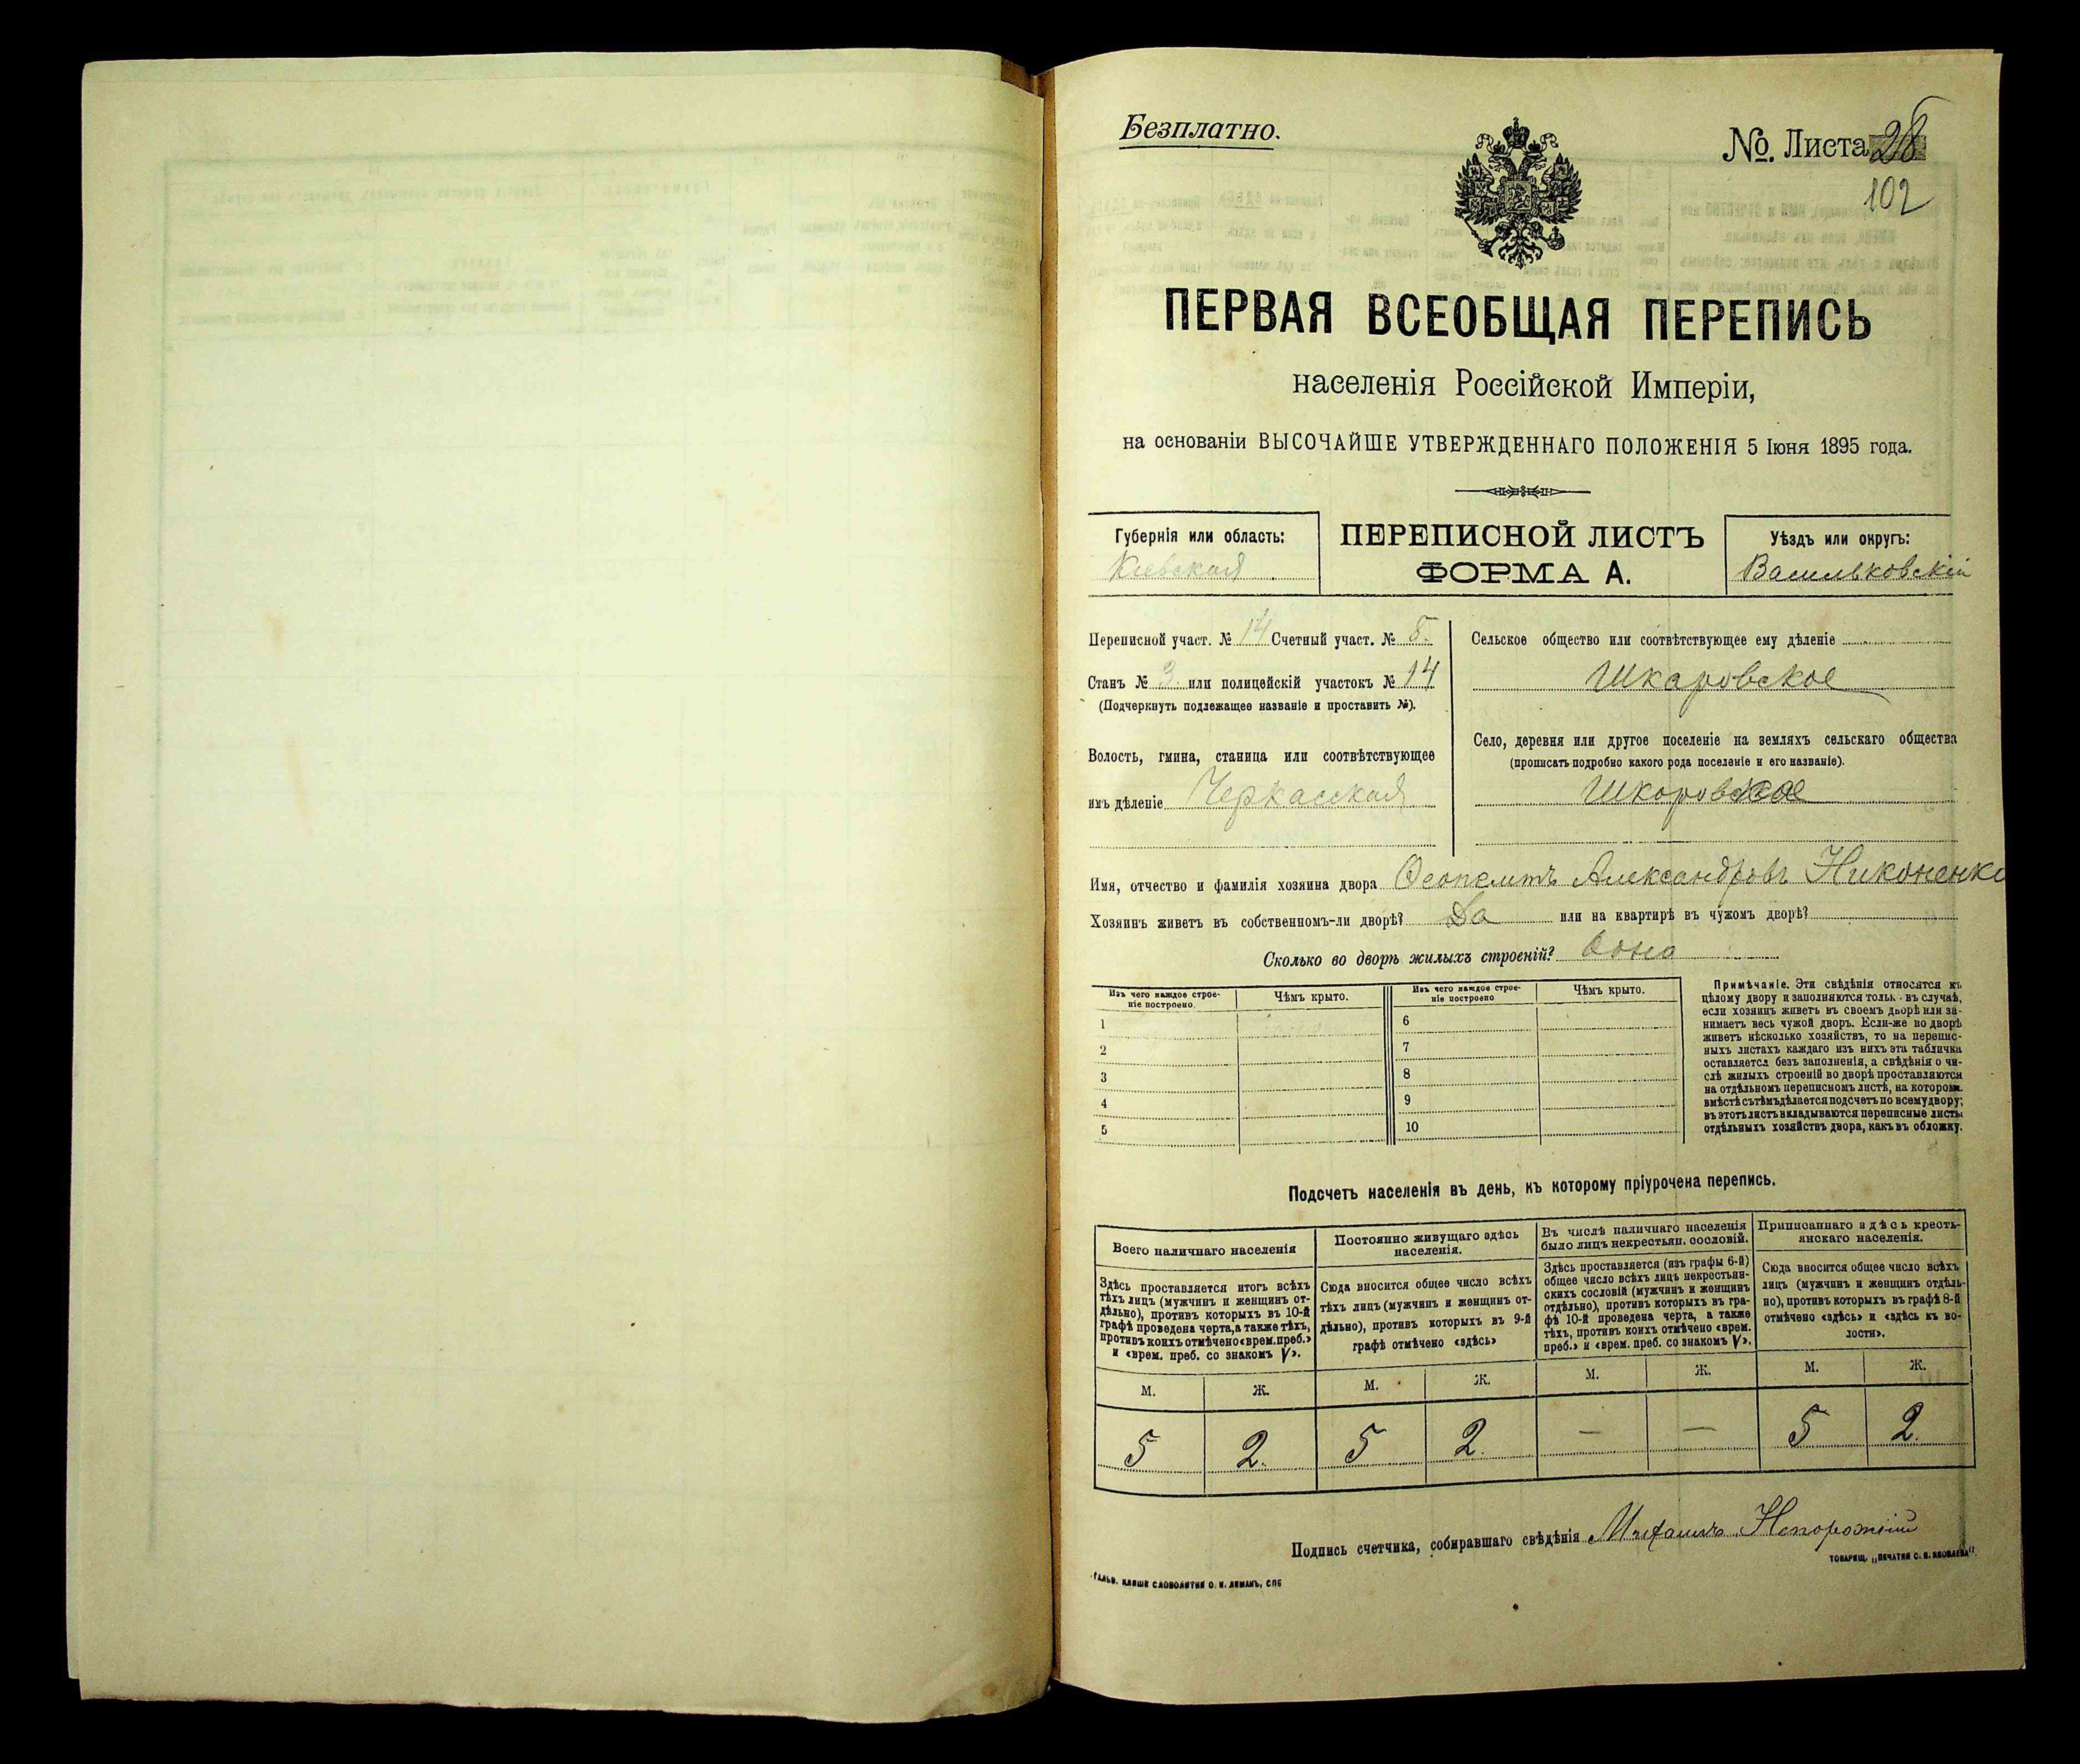 Безплатно.
№. Листа 28
102
ПЕРВАЯ ВСЕОБЩАЯ ПЕРЕПИСЬ
населенія Россійской Имперіи,
на основаніи ВЫСОЧАЙШЕ УТВЕРЖДЕННАГО ПОЛОЖЕНІЯ 5 Іюня 1895 года.
Губернія или область:
Кіевская
ПЕРЕПИСНОЙ ЛИСТЪ
ФОРМА А.
Уѣздъ или округъ:
Васильковскій
Переписной участ. № 14 Счетный участ. № 5.
Станъ № 3. или полицейскій участокъ № 14
(Подчеркнуть подлежащее названіе и проставить №).
Волость, гмина, станица или соотвѣтствующее
имъ дѣленіе Черкасская
Сельское общество или соотвѣтствующее ему дѣленіе
Шкаровское
Село, деревня или другое поселеніе на земляхъ сельскаго общества
(прописать подробно какого рода поселеніе и его названіе).
Шкоровское
Имя, отчество и фамилія хозяина двора Александровъ Никоненко
Хозяинъ живетъ въ собственномъ-ли дворѣ? Да или на квартирѣ въ чужомъ дворѣ?
Сколько во дворѣ жилыхъ строеній? Одно
Изъ чего каждое строе-
ніе построено.
Чѣмъ крыто.
Изъ чего каждое строе-
ніе построено
Чѣмъ крыто.
1
2
3
4
5
6
7
8
9
10
Примѣчаніе. Эти свѣдѣнія относятся къ
цѣлому двору и заполняются тольк въ случаѣ,
если хозяинъ живетъ въ своемъ дворѣ или за-
нимаетъ весь чужой дворъ. Если-же во дворѣ
живетъ нѣсколько хозяйствъ, то на перепис-
ныхъ листахъ каждаго изъ нихъ эта табличка
оставляется безъ заполненія, а свѣдѣнія о чи-
слѣ жилыхъ строеній во дворѣ проставляются
на отдѣльномъ переписномъ листѣ, на которомъ
вмѣстѣ съ тѣмъ дѣлается подсчетъ по всему двору;
въ этотъ листъ вкладываются переписные листы
отдѣльныхъ хозяйствъ двора, какъ въ обложку.
Подсчетъ населенія въ день, къ которому пріурочена перепись.
Всего наличнаго населенія
Здѣсь проставляется итогъ всѣхъ
тѣхъ лицъ (мужчинъ и женщинъ от-
дѣльно), противъ которыхъ въ 10-й
графѣ проведена черта, а также тѣхъ,
противъ коихъ отмѣчено «врем. преб.»
и «врем. преб. со знакомъ V».
Постоянно живущаго здѣсь
населенія.
Сюда вносится общее число всѣхъ
тѣхъ лицъ (мужчинъ и женщинъ от-
дѣльно), противъ которыхъ въ 9-й
графѣ отмѣчено «здѣсь»
Въ числѣ наличнаго населенія
было лицъ некрестьян. сословій.
Здѣсь проставляется (изъ графы 6-й)
общее число всѣхъ лицъ некрестьян-
скихъ сословій (мужчинъ и женщинъ
отдѣльно), противъ которыхъ въ гра-
фѣ 10-й проведена черта, а также
тѣхъ, противъ коихъ отмѣчено «врем.
преб.» и «врем. преб. со знакомъ V».
Приписаннаго здѣсь кресть-
янскаго населенія.
Сюда вносится общее число всѣхъ
лицъ (мужчинъ и женщинъ отдѣль-
но), противъ которыхъ въ графѣ 8-й
отмѣчено «здѣсь» и «здѣсь къ во-
лости».
М. Ж. М. Ж. М. Ж. М. Ж.
5 2. 5 2. — — 5 2.
Подпись счетчика, собиравшаго свѣдѣнія Михаилъ Непорожній
ТОВАРИЩ. „ПЕЧАТНЯ С. П. ЯКОВЛЕВА“.
ГАЛЬВ. КЛИШЕ СЛОВОЛИТНИ О. И. ЛЕМАНЪ, СПБ